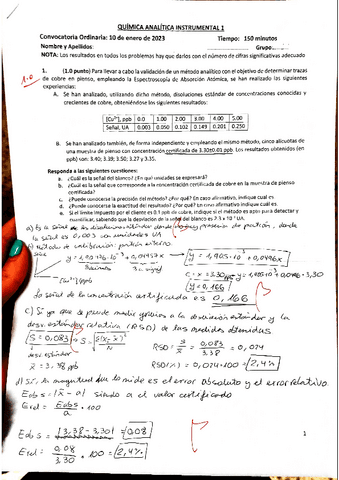 QUÍMICA ANALÍTICA INSTRUMENTAL 1
Convocatoria Ordinaria: 10 de enero de 2023 Tiempo: 150 minutos
Nombre y Apellidos: Grupo:
NOTA: Los resultados en todos los problemas hay que darlos con el número de cifras significativas adecuado
1.0
1. (1.0 punto) Para llevar a cabo la validación de un método analítico con el objetivo de determinar trazas
de cobre en pienso, empleando la Espectroscopía de Absorción Atómica, se han realizado las siguientes
experiencias:
A. Se han analizado, utilizando dicho método, disoluciones estándar de concentraciones conocidas y
crecientes de cobre, obteniéndose los siguientes resultados:
[Cu²⁺], ppb 0.0 1.00 2.00 3.00 4.00 5.00
Señal, UA 0.003 0.050 0.102 0.149 0.201 0.250
B. Se han analizado también, de forma independiente y empleando el mismo método, cinco alícuotas de
una muestra de pienso con concentración certificada de 3.30±0.01 ppb. Los resultados obtenidos (en
ppb) son: 3.40; 3.39; 3.50; 3.27 y 3.35.
Responda a las siguientes cuestiones:
a. ¿Cuál es la señal del blanco? ¿En qué unidades se expresará?
b. ¿Cuál es la señal que corresponde a la concentración certificada de cobre en la muestra de pienso
certificada?
c. ¿Puede conocerse la precisión del método? ¿Por qué? En caso afirmativo, indique cuál es
d. ¿Puede conocerse la exactitud del resultado? ¿Por qué? En caso afirmativo indique cuál es.
e. Si el límite impuesto por el cliente es 0.1 ppb de cobre, indique si el método es apto para detectar y
cuantificar, sabiendo que la desviación de la señal del blanco es
a) Es la señal de presencia de , donde
la señal es 0,003 con unidades UA
Método de calibración: patrón externo
y = 1,905·10⁻³ + 0,0496x
C = x = 3.30
y = 0,166
[Cu²⁺] ppb
La señal de la concentración certificada es 0,166
c) Sí ya que se puede medir gracias a la desviación estándar y la
desv. estándar relativa (RSD) de las medidas obtenidas
S = 0,083
desv. estándar
x̄ = 3,38 ppb
RSD = S/x̄ = 0,083/3,38 = 0,024
RSD(%) = 0,024·100 = 2,4%
d) Sí, la magnitud que lo mide es el error absoluto y el error relativo
Eabs = |x̄ - a| siendo a el valor certificado
Erel = Eabs/a · 100
Eabs = |3,38 - 3,30| = 0,08
Erel = 0,08/3,30 · 100 = 2,4%
1